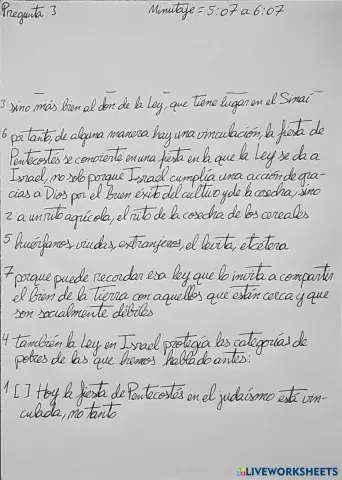 Pregunta 3 Minutaje = 5:07 a 6:07
3 sino más bien al don de la Ley, que tiene lugar en el Sinaí
6 por tanto, de alguna manera hay una vinculación, la fiesta de
Pentecostés se convierte en una fiesta en la que la Ley se da a
Israel, no solo porque Israel cumplía una acción de gra-
cias a Dios por el buen éxito del cultivo y de la cosecha, sino
2 a un rito agrícola, el rito de la cosecha de los cereales
5 huérfanos, viudas, extranjeros, el levita, etcétera
7 porque puede recordar esa ley que lo invita a compartir
el bien de la tierra con aquellos que están cerca y que
son socialmente débiles
4 también la Ley en Israel protegía las categorías de
pobres de las que hemos hablado antes:
1 [ ] Hoy la fiesta de Pentecostés en el judaísmo está vin-
culada, no tanto
LIVEWORKSHEETS